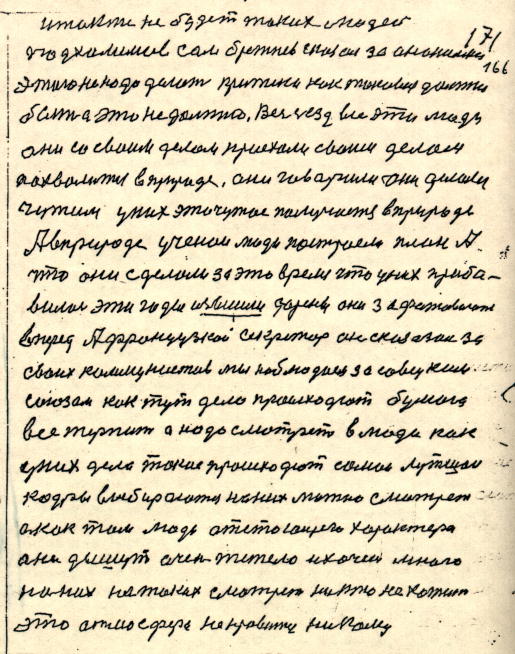 и такти не будет таких людей
171
подхалимов сам брежнев сказал за
166
этого не надо делат критика как таковая должна
быт а это не должно. Все эти люди
они со своим делом приехали своим делом
похвалитя в природе, они говорили они делали
чужим у них это чужое получаетя в природе
А в природе ученои люди построем план А
что они сделали за это время что у них приба-
вилос эти годы они
вперед А французкой секретар он сказал за
своих комунистов мы наблюдаем за совецким
союзам как тут дело происходит бумага
все терпит а надо смотрет в люди как
у них дела такие происходют самои лутшои
кадры выбираютя на них можно смотрет
а как там люди характера
они дышут очен тежело их очен много
на них на таких смотрет никто не хочит
это атмосфера не нравитя никому